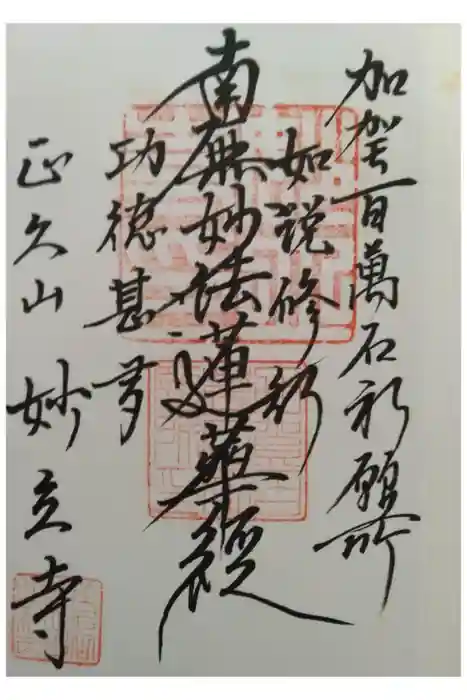 加賀百萬石祈願所
如説修行
南無妙法蓮華経
功徳甚多
正久山 妙立寺